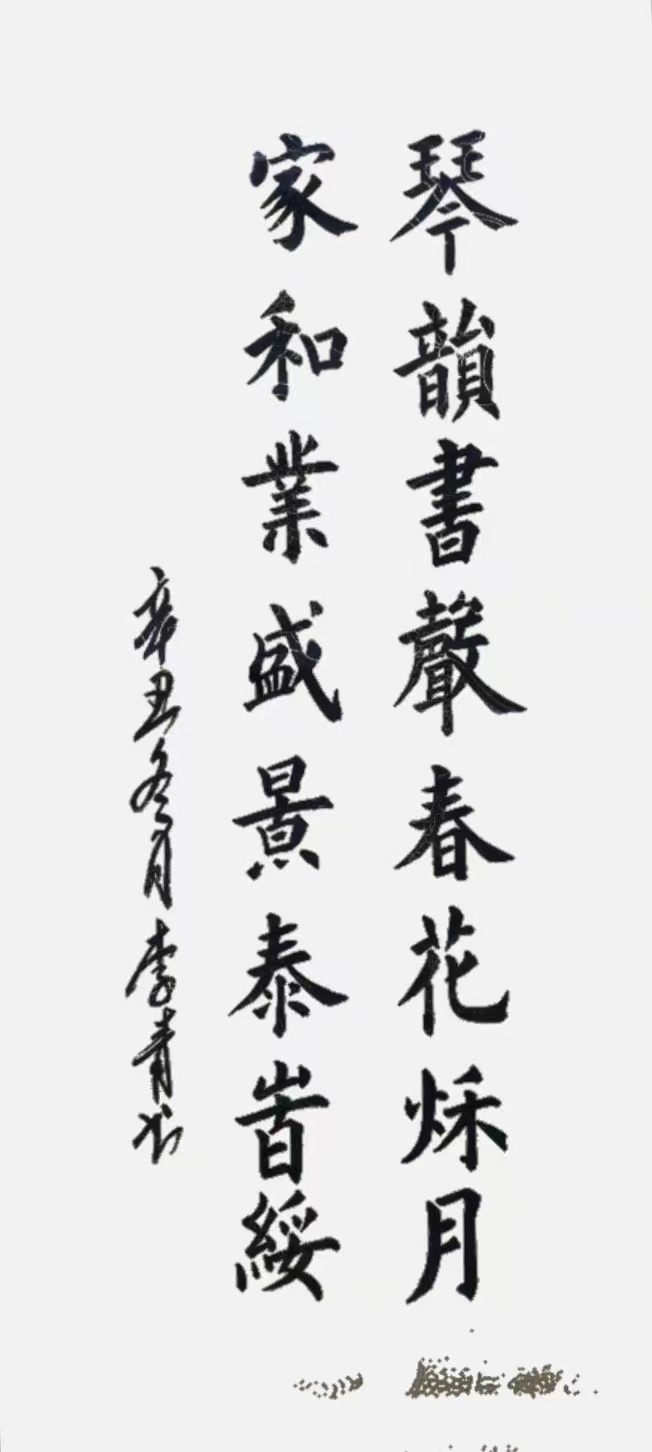 琴韻書聲春花秌月
家和業盛景泰旹綏
辛丑冬月李青书